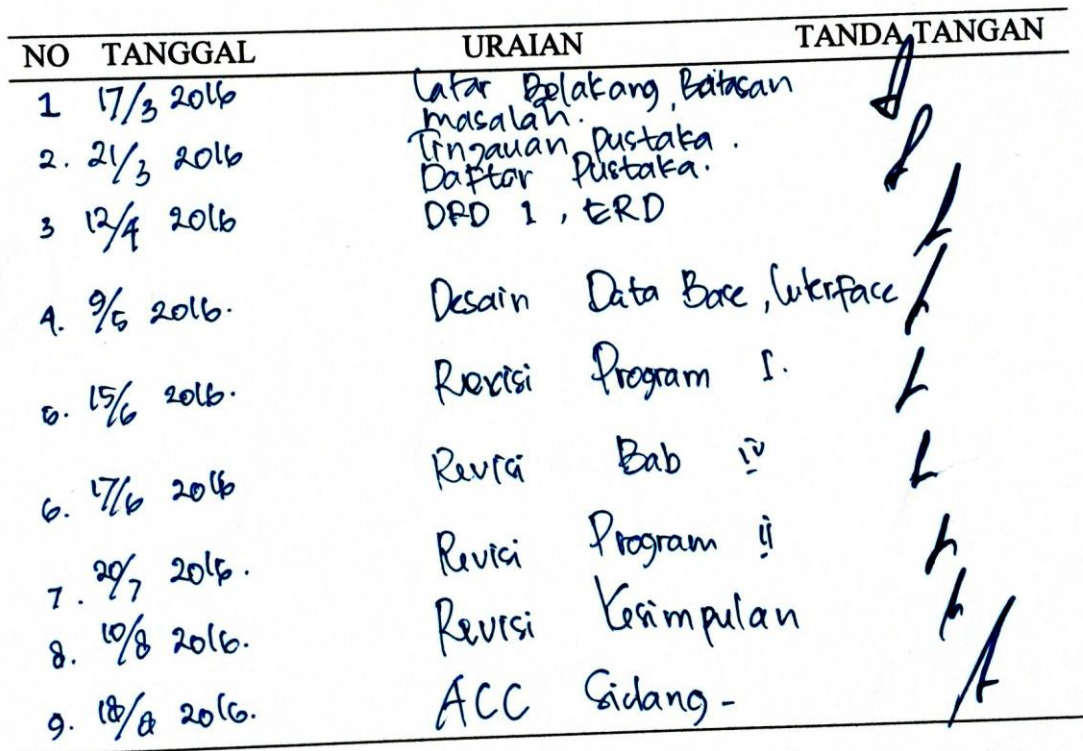 NO TANGGAL URAIAN TANDA TANGAN
1 17/3 2016 Latar Belakang, Batasan
masalah.
2. 21/3 2016 Tinjauan pustaka.
Daftar Pustaka.
3 12/4 2016 DFD 1, ERD
4. 9/5 2016. Desain Data Base, Interface
5. 15/6 2016. Revisi Program I.
6. 17/6 2016 Revisi Bab IV
7. 20/7 2016. Revisi Program II
8. 10/8 2016. Revisi Kesimpulan
9. 18/8 2016. ACC Sidang -